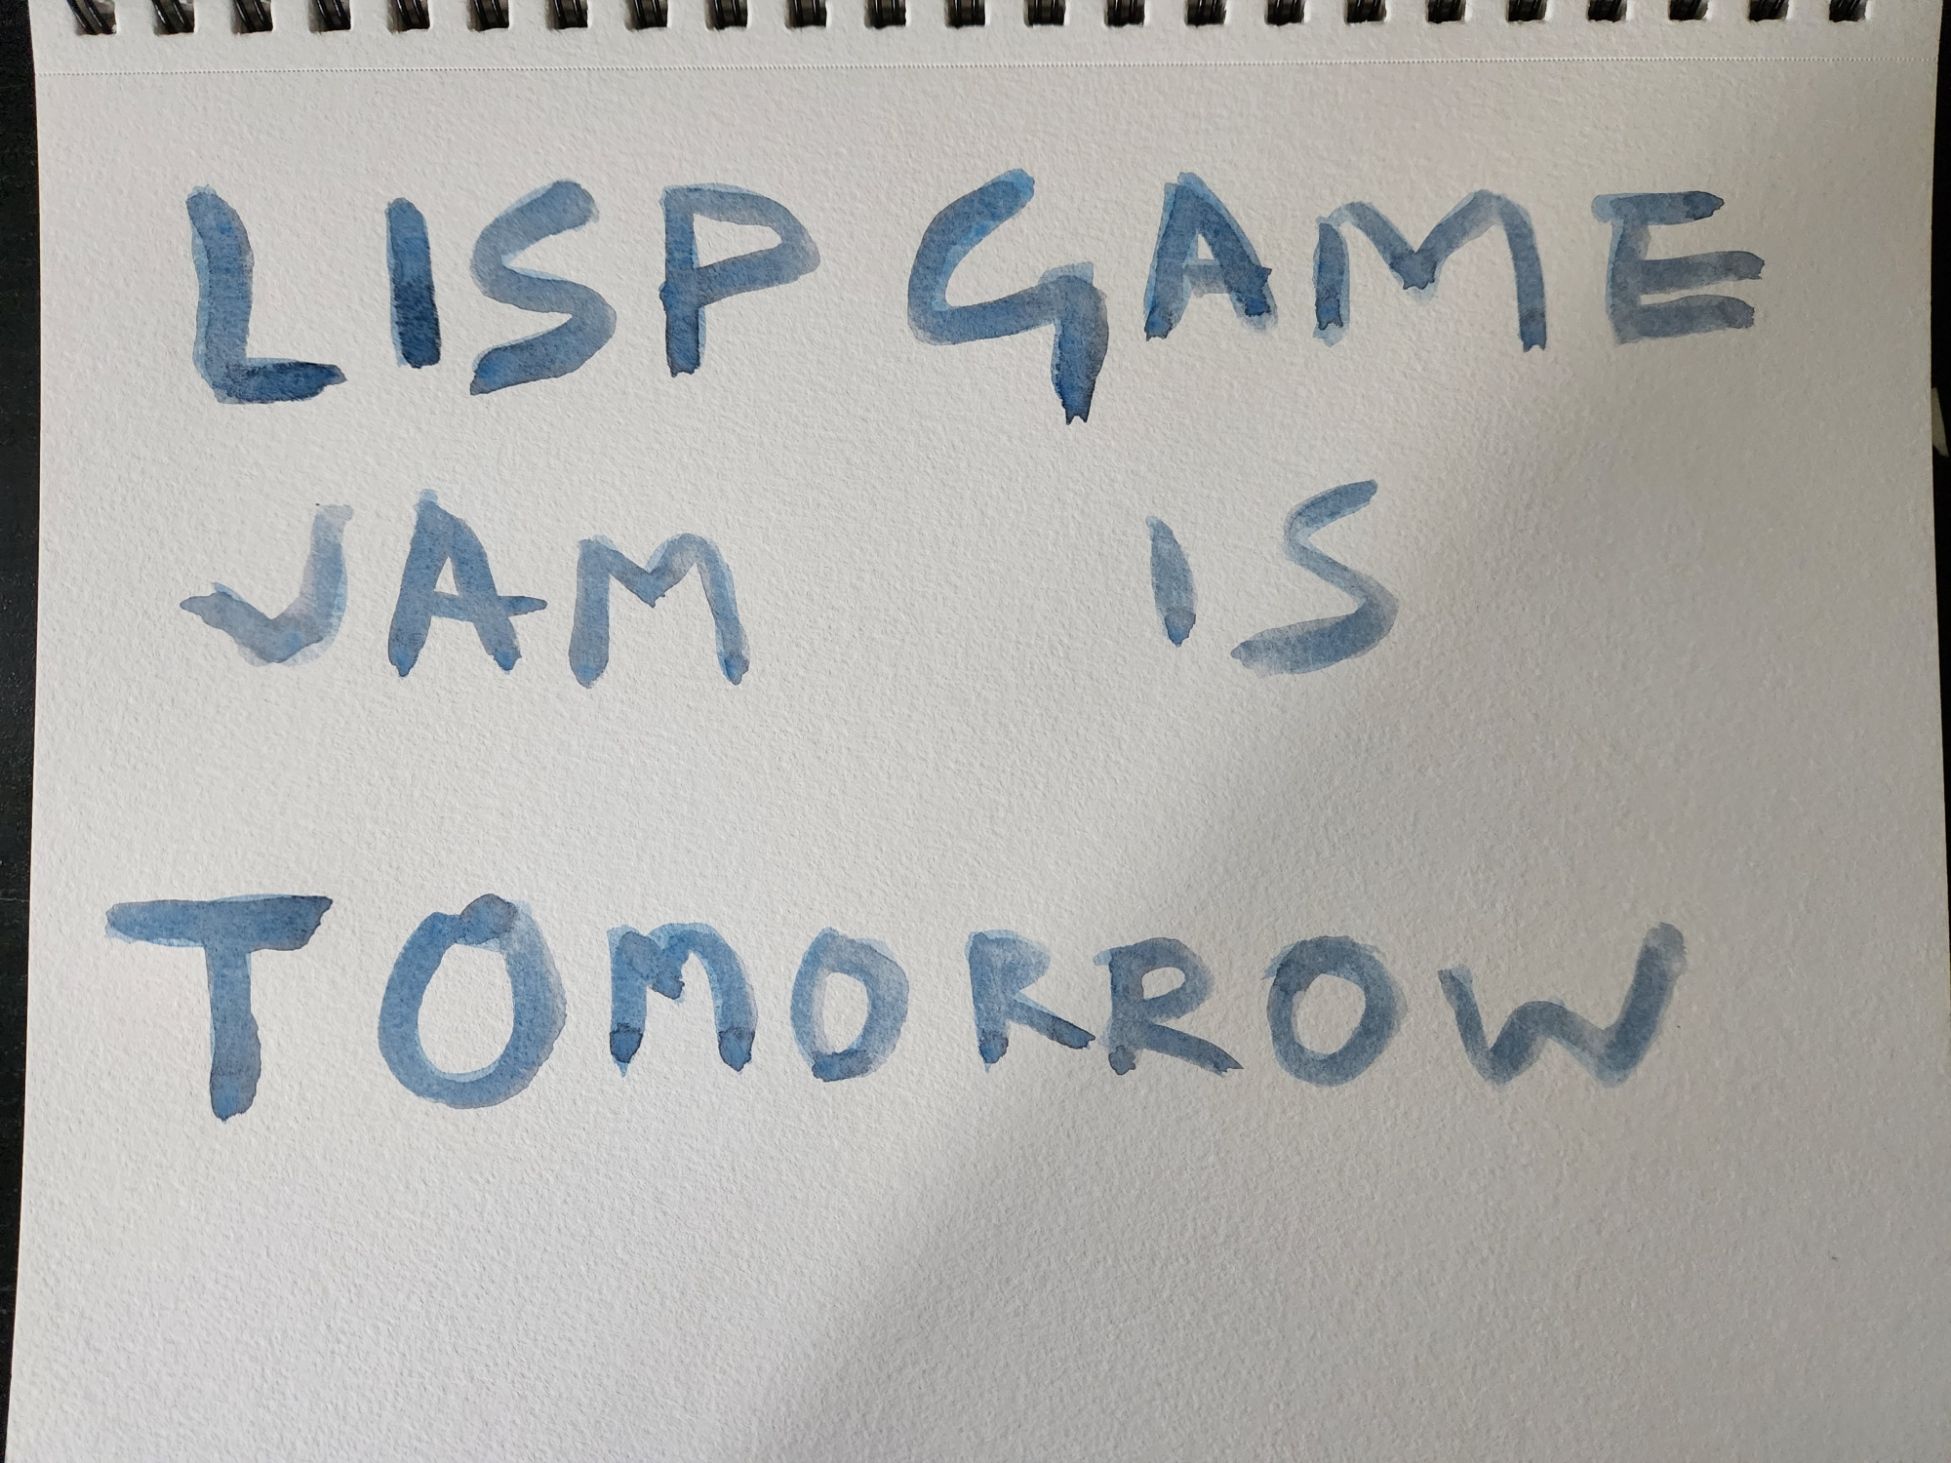 LISP GAME
JAM IS
TOMORROW